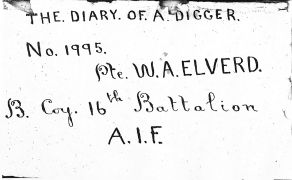 THE. DIARY. OF. A. DIGGER.
No. 1995.
Pte. W. A. ELVERD.
B. Coy. 16th Battalion
A. I. F.